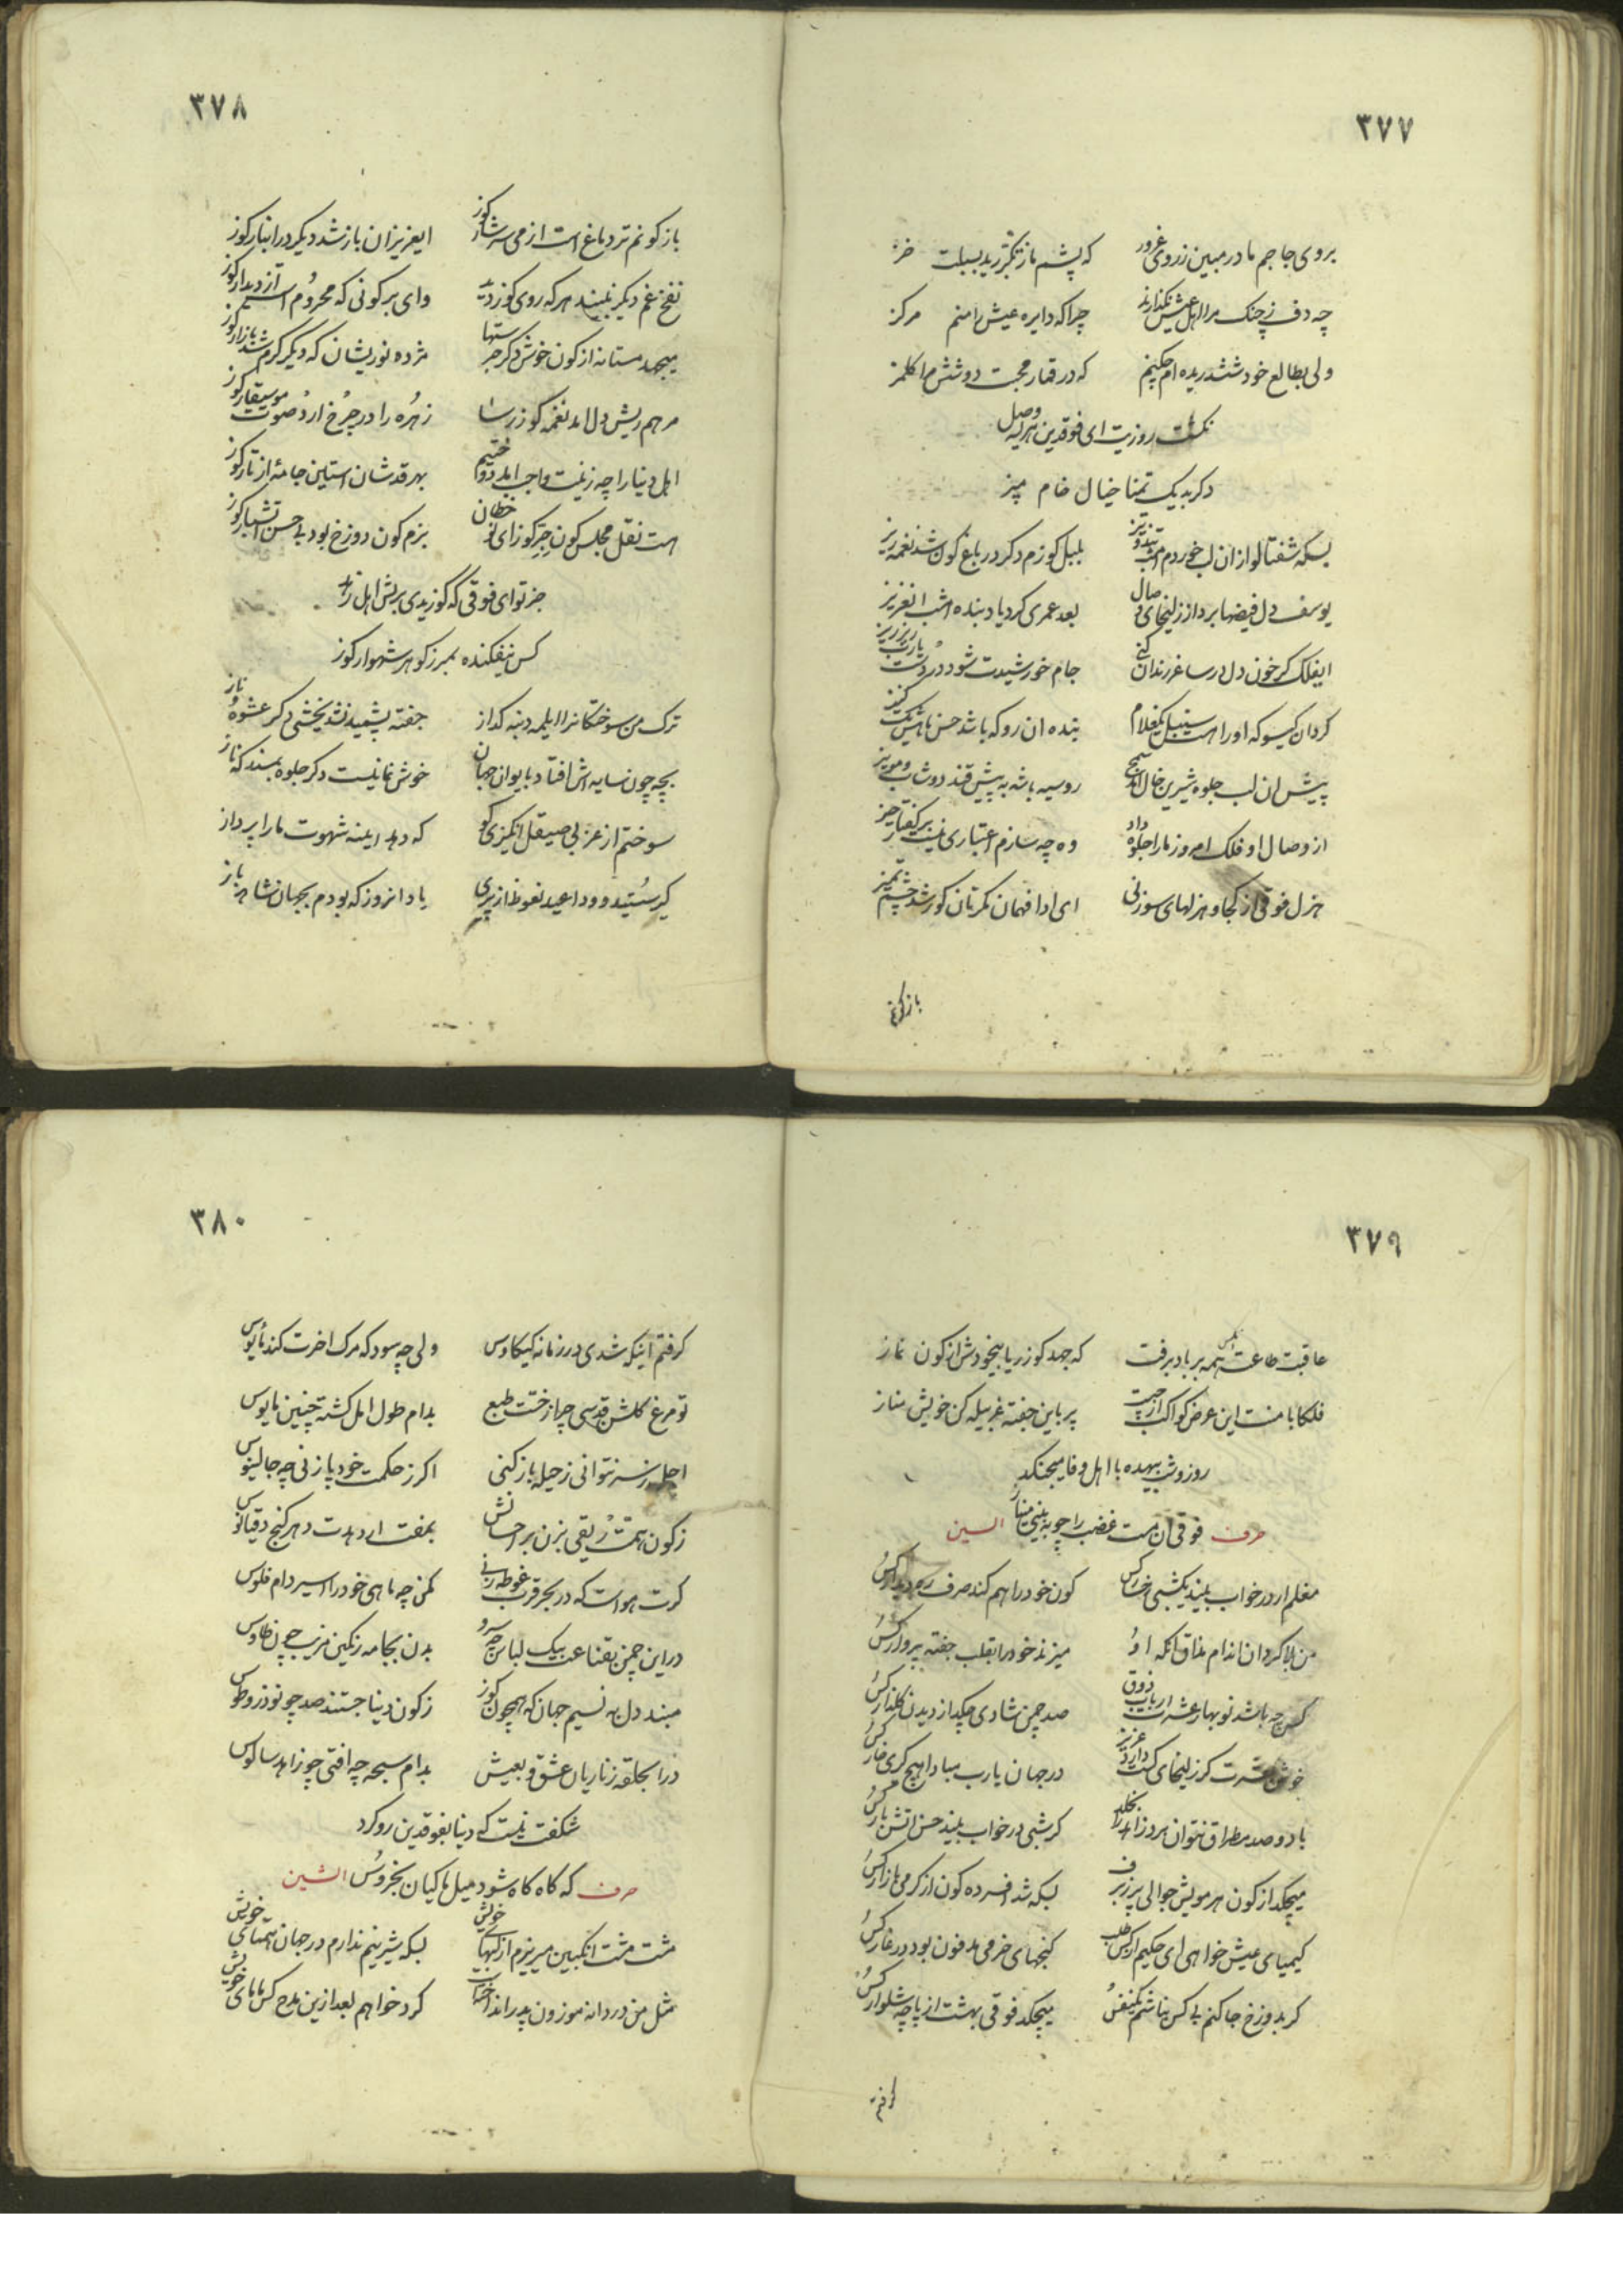 ٣٧٧
بروی جاجم ما در مبین ز روی غرور که پشم ما ز تکبر رید بسبلت خز
چه دف ز چنک مرا اهل عیش نکذارند چرا که دایره عیش را منم مرکز
ولی بطالع خود ششدر یده ام حکیم که در قمار محبت دو شش مرا کلمز
روزیت ای فوقدین هر
دکر بدیک تمنا خیال خام مپز
بسکه شفتالو از ان لب خوردم امشب تند و تیز بلبل کوزم دکر در باغ کون شد نغمه ریز
یوسف دل فیضها برد از زلیخای وصال بعد عمری کرد یاد بنده امشب انعزیز
ایفلک کر خون دل در ساغر رندان کنی جام خورشیدت شود در دست یارب ریز ریز
کردان کیسو که او را هست سنبل یکغلام بنده ان رو که باشد حسن ماهش یک کنیز
پیش ان لب جلوه شیرین خال اند سیج روسیه باشد به پیش قند دوشاب و مویز
از وصال او فلک امروز ما را جلوه داد وه چه سازم اعتباری نیست بر کفتار حیز
هزل فوقی از کجا و هزلهای سوزنی ای ادا فهمان مکرتان کور شد چشم تمیز
باز کونم
٣٧٨
باز کونم تر دماغ است از می سرشار کوز ایعزیزان باز شد دیکر در انبار کوز
نفخ غم دیکر نبیند هر که روی کوز دید وای بر کونی که محروم است از دیدار کوز
میجهد مستانه از کون خوش دکر مژده نوریشان که دیکر کرم شد بازار کوز
مرهم ریش دل امد نغمه کوز رسا زهره را در چرخ ارد صوت موسیقار کوز
اهل دنیا را چه زینت واجب امد دوختیم بهر قدشان استاین جامهٔ از تار کوز
هست نقل مجلس کون جز کوز ای بزم کون دوزخ بود بی حسن اتشبار کوز
جز تو ای فوقی که کوزیدی بریش اهل زهد
کس نیفکنده بمبرز کوهر شهوار کوز
ترک من سوختکانرا ایلمه دنبه کداز جفته پشمید نشد بخشی دکر عشوهٔ ناز
بچه چون سایه اش افتاد بایوان جهان خوش نما نیست دکر جلوه سمند که ناز
سوختم از عزبی صیقل انکیزی کو که دهد اینه شهوت ما را پرداز
کیر سستید و وداعید نعوظ از پیری یاد انروز که بودم بجهان شاهد باز
٣٧٩
عاقبت طاعتش همه بر باد برفت که جهد کوز ریا بیخودش از کون نماز
فلکا با منت این عرض کواکب از چیست پر باین جفته غربیله کن خویش مناز
روز و شب بیهده با اهل وفا میجنکد
حرف فوقی ان مست غضب را چو به بینی السین
مغلم ار در خواب بیند یکشبی رخسار کس کون خود را هم کند صرف ره دیدار کس
من بلا کردان اندام مذاق انکه او میزند خود را بقلب جفته پروار کس
کس چه باشد نو بهار عشرت ارباب ذوق صد چمن شادی چکد از دیدن کلنار کس
خوش عشرت کز زلیخای کست دارد عزیز در جهان یارب مبادا هیچ کیری خار کس
با دو صد مطراق نتوان برد زاهد را بخلد کر شبی در خواب بیند حسن اتش بار کس
میچکد از کون هر مویش جوالی پر ز برف بسکه شد افسرده کون از کرمی بازار کس
کیمیای عیش خواهی ای حکیم از کس طلب کنجهای خرمی مدفون بود در غار کس
کر بدوزخ جا کنم بی کس نباشم یکنفس میچکد فوقی بهشت از پاچه شلوار کس
کرفتم
٣٨٠
کرفتم اینکه شدی در زمانه کیکاوس ولی چه سود که مرک اخرت کند مأیوس
تو مرغ کلشن قدسی چرا ز خست طبع بدام طول امل کشته چنین مایوس
اجل رسد نتوانی ز حیله باز کنی اکر ز حکمت خود پا زنی چه جالینوس
ز کون همت ریقی بزن بر احسانش بمفت ار دهدت دهر کنج دقیانوس
کرت هواست که در بحر قرب غوطه زنی مکن چه ماهی خود را اسیر دام فلوس
در این چمن بقناعت بیک لباس چه سرو بدن بجامه رنکین مزیب چون طاوس
مبند دل به نسیم جهان که همچون کوز ز کون دنیا جستند صد چو نوذر و طوس
درا بحلقه زناریان عشق و بعیش بدام سبحه چه افتی چو زاهد سالوس
شکفت نیست که دنیا بفوقدین رو کرد
حرف که کاه کاه شود میل ماکیان بخروس الشین
مشت مشت انکبین میریزم از لبهای خویش بسکه شیرینم ندارم در جهان همتای خویش
مثل من دردانه موزون پدر انداخت کرد خواهم بعد ازین مدح کس مامای خویش